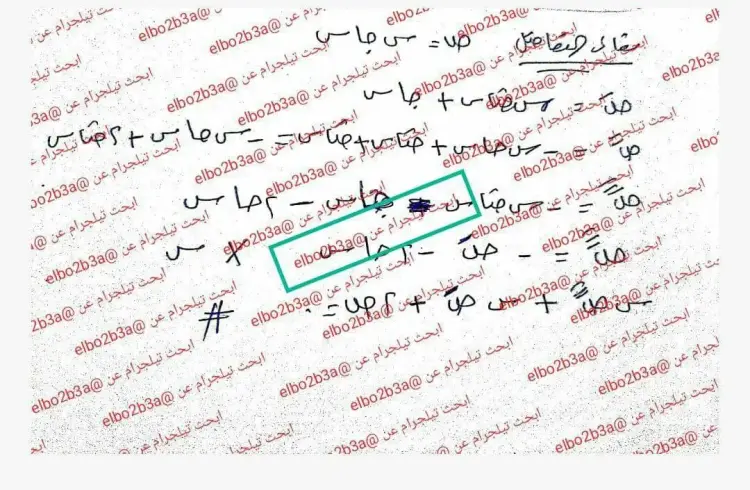 مقال التفاضل ص = س جا س
صَ = س جتا س + جا س
صً = - س جا س + جتا س + جتا س = - س جا س + ٢ جتا س
= - س جتا س - جا س - ٢ جا س
= - صَ - ٢ جا س × س
س ص + س صَ + ٢ ص = ٠ #
ابحث تيليجرام عن @elbo2b3a